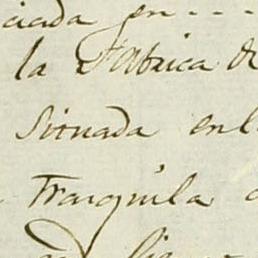 ciada en - - -
la Fabrica de
Situada enl
Traiquila